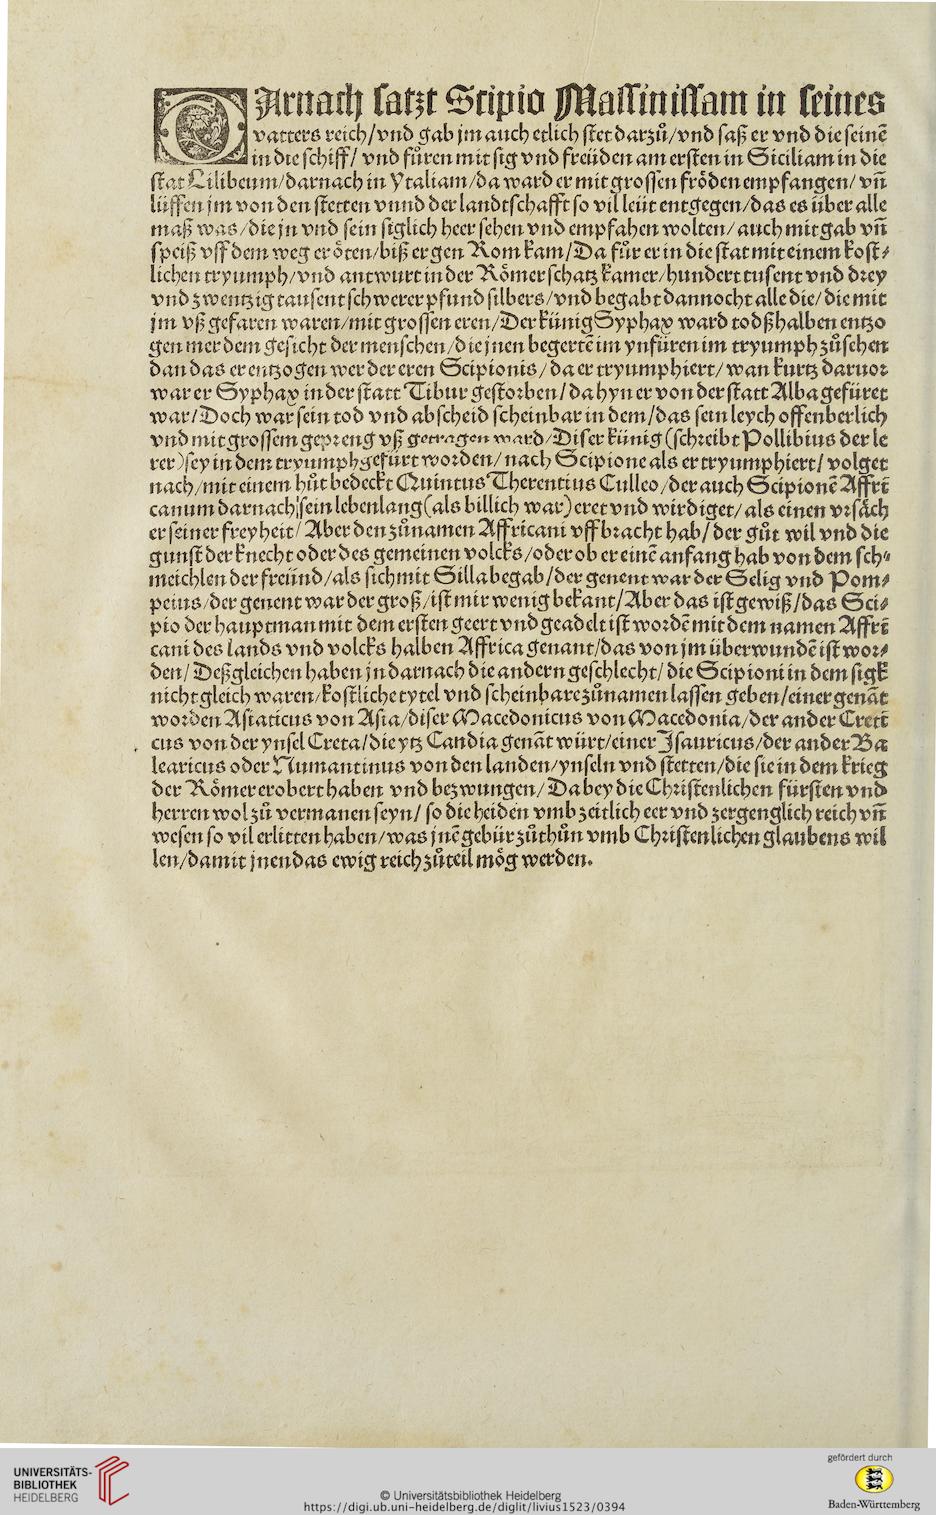 DArnach satzt Scipio Massinissam in seines
vatters reich/vnd gab jm auch etlich stet darzů/vnd saß er vnd die seinẽ
in die schiff/ vnd fůren mit sig vnd freüden am ersten in Siciliam in die
stat Lilibeum/darnach in Ytaliam/da ward er mit grossen fröden empfangen/ vñ
lüffen jm von den stetten vnnd der landtschafft so vil leüt entgegen/das es über alle
maß was/die jn vnd sein siglich heer sehen vnd empfahen wolten/auch mit gab vñ
speiß vff dem weg er öten/biß er gen Rom kam/Da fůr er in die stat mit einem kost⸗
lichen tryumph/vnd antwurt in der Römer schatz kamer/hundert tusent vnd drey
vnd zwentzig tausent schwerer pfund silbers/vnd begabt dannocht alle die/die mit
jm vß gefaren waren/mit grossen eren/Der künig Syphax ward todßhalben entzo
gen mer dem gesicht der menschen/die jnen begertẽ im ynfüren im tryumph zůsehen
dan das er entzogen wer der eren Scipionis/da er tryumphiert/wan kurtz daruor
war er Syphax in der statt Tibur gestorben/da hyn er von der statt Alba gefüret
war/Doch war sein tod vnd abscheid scheinbar in dem/das sein leych offenberlich
vnd mit grossem gepreng vß getragen ward/Diser künig (schreibt Pollibius der le
rer) sey in dem tryumph gefürt worden/nach Scipione als er tryumphiert/volget
nach/mit einem hůt bedeckt Quintus Therentius Culleo/der auch Scipionẽ Affri
canum darnach sein lebenlang (als billich war) eret vnd wirdiget/als einen vrsäch
er seiner freyheit/Aber den zůnamen Affricani vff bracht hab/der gůt wil vnd die
gunst der knecht oder des gemeinen volcks/oder ob er einẽ anfang hab von dem sch⸗
meichlen der freünd/als sich mit Silla begab/der genent war der Selig vnd Pom⸗
peius/der genent war der groß/ist mir wenig bekant/Aber das ist gewiß/das Sci⸗
pio der hauptman mit dem ersten geert vnd geadelt ist wordẽ mit dem namen Affri
cani des lands vnd volcks halben Affrica genant/das von jm überwundẽ ist wor⸗
den/Deßgleichen haben jn darnach die andern geschlecht/die Scipioni in dem sigk
nicht gleich waren/kostliche tytel vnd scheinbare zůnamen lassen geben/einer genãt
worden Asiaticus von Asia/diser Macedonicus von Macedonia/der ander Creti
cus von der ynsel Creta/die ytz Candia genãt würt/einer Jsauricus/der ander Ba
learicus oder Numantinus von den landen/ynseln vnd stetten/die sie in dem krieg
der Römer erobert haben vnd bezwungen/Dabey die Christenlichen fürsten vnd
herren wol zů vermanen seyn/so die heiden vmb zeitlich eer vnd zergenglich reich vñ
wesen so vil erlitten haben/was jnẽ gebür zůthůn vmb Christenlichen glaubens wil
len/damit jnen das ewig reich zůteil mög werden.
UNIVERSITÄTS-
BIBLIOTHEK
HEIDELBERG
© Universitätsbibliothek Heidelberg
https://digi.ub.uni-heidelberg.de/diglit/livius1523/0394
gefördert durch
Baden-Württemberg